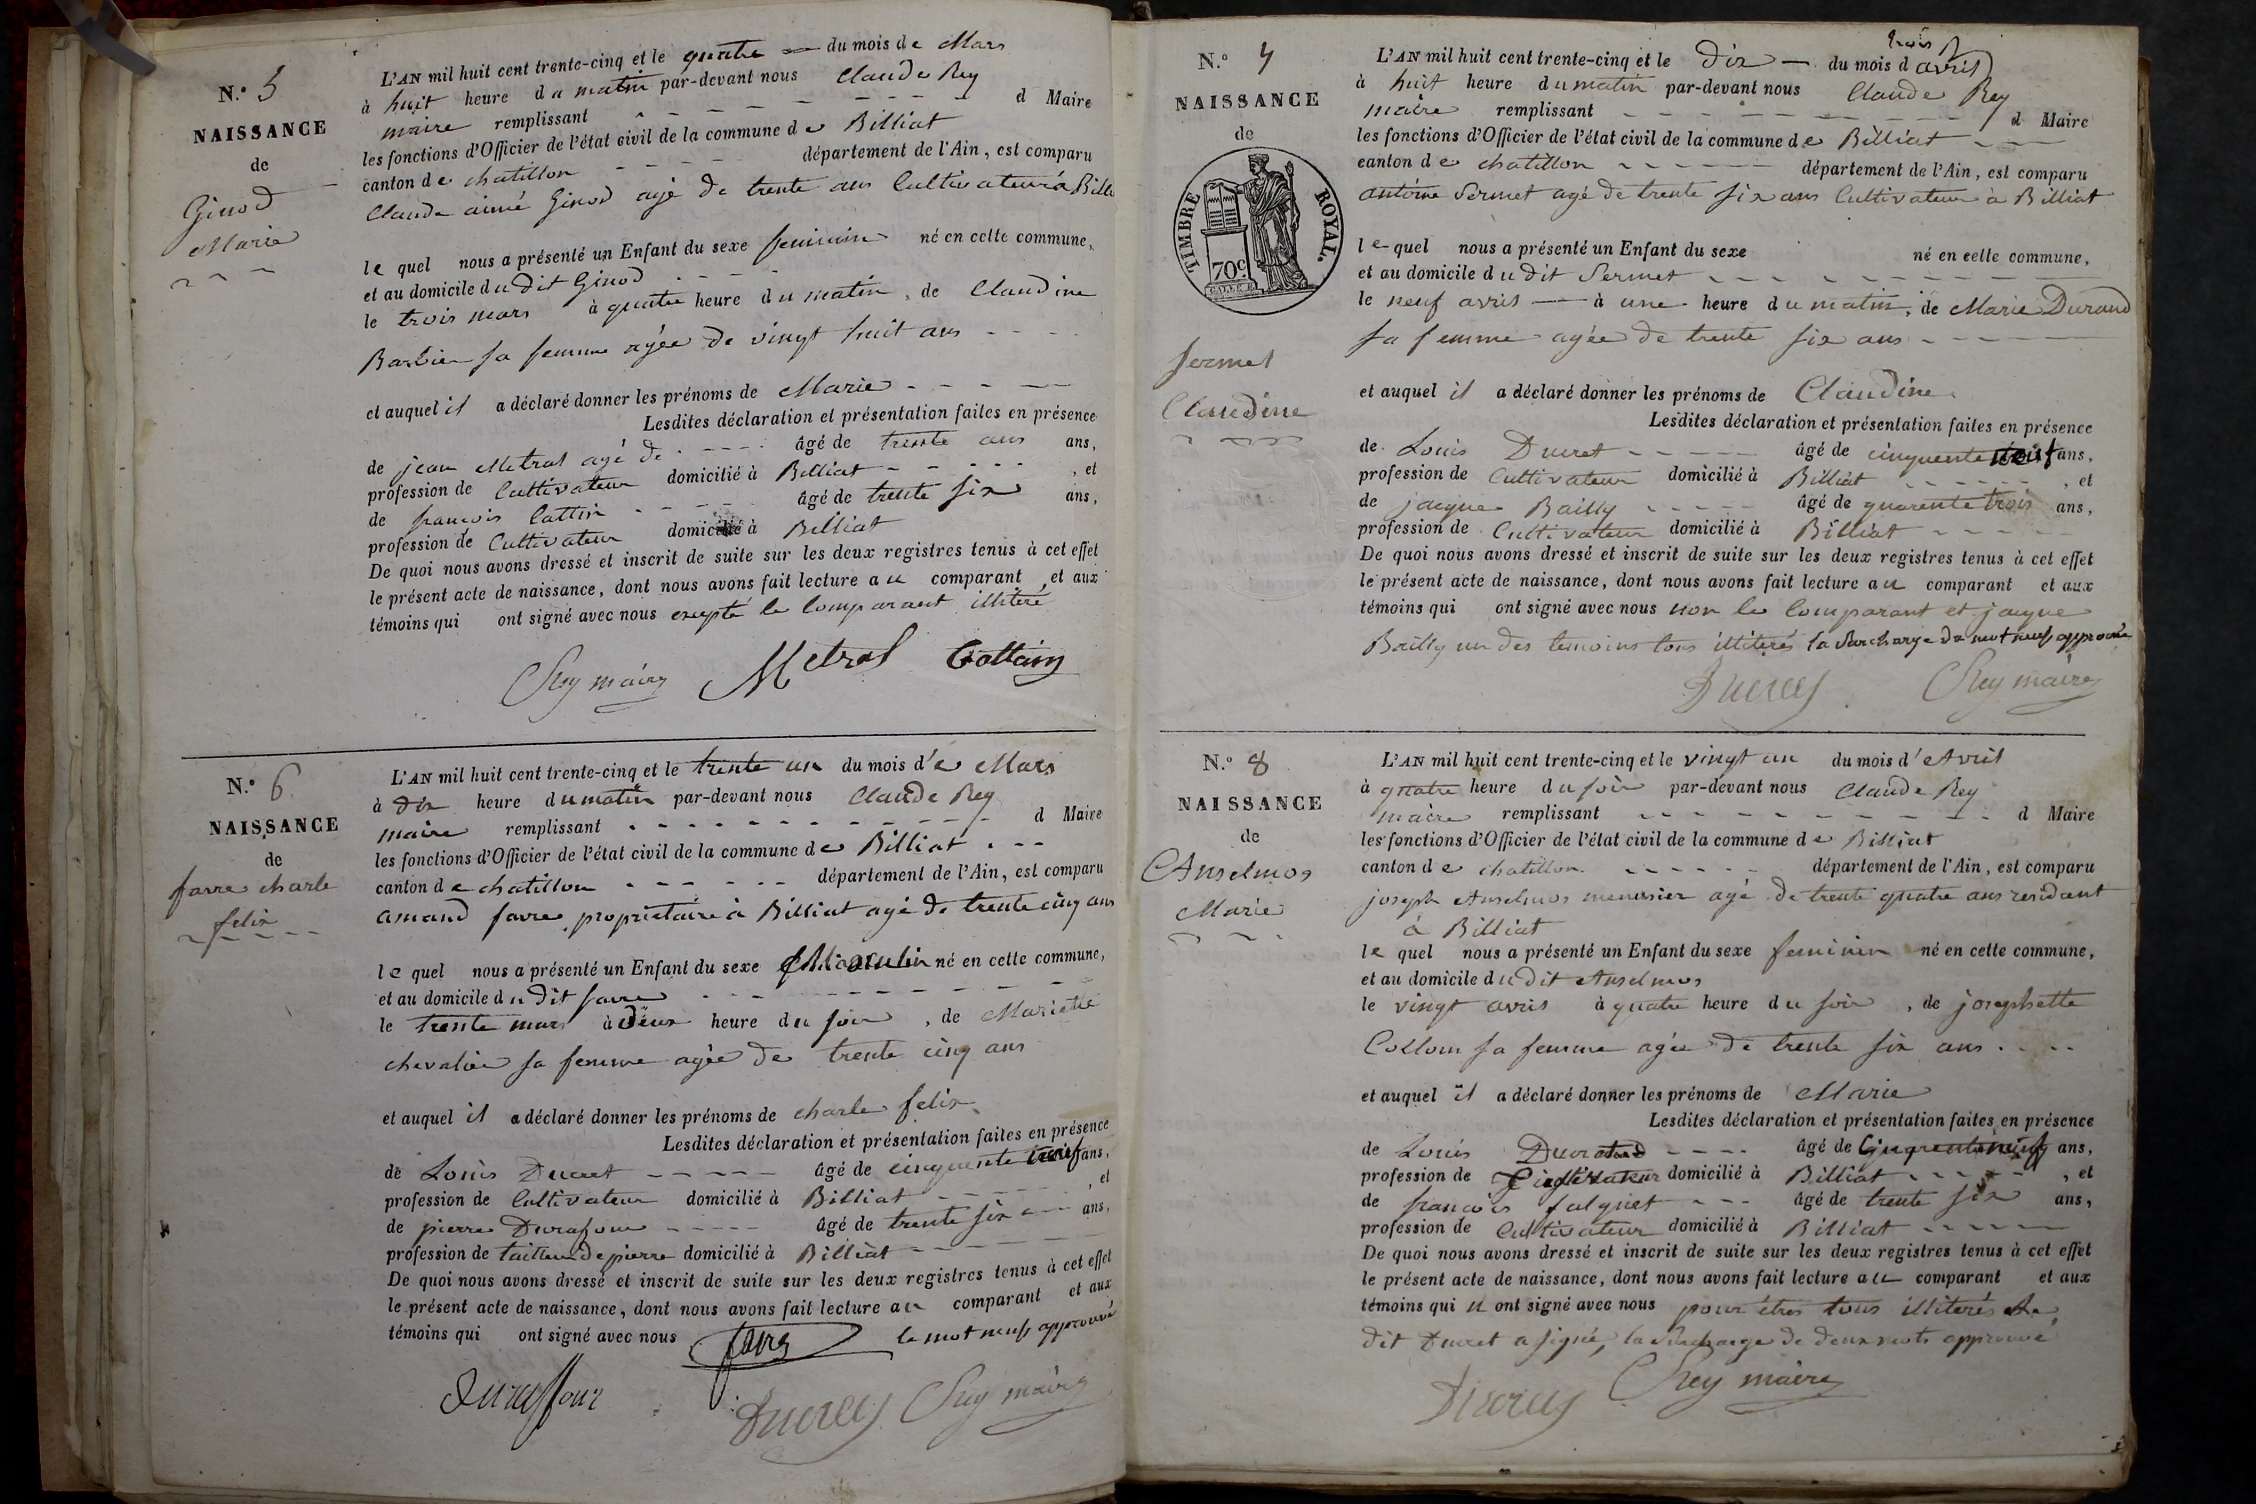 N.o 5
NAISSANCE
de
Ginod
Marie
L'AN mil huit cent trente-cinq et le quatre du mois de Mars
à huit heure du matin par-devant nous Claude Rey
maire remplissant d Maire
les fonctions d'Officier de l'état civil de la commune de Billiat
canton de chatillon département de l'Ain, est comparu
Claude aimé Ginod agé de trente ans Cultivateur à Billi
le quel nous a présenté un Enfant du sexe feminin né en cette commune,
et au domicile du dit Ginod
le trois mars à quatre heure du matin, de Claudine
Barbier sa femme agée de vingt huit ans
et auquel il a déclaré donner les prénoms de Marie
Lesdites déclaration et présentation faites en présence
de jean Metral agé de âgé de trente ans ans,
profession de Cultivateur domicilié à Billiat , et
de francois Cattin âgé de trente six ans,
profession de Cultivateur domicilié à Billiat
De quoi nous avons dressé et inscrit de suite sur les deux registres tenus à cet effet
le présent acte de naissance, dont nous avons fait lecture au comparant et aux
témoins qui ont signé avec nous excepté le Comparant illiteré
CRey maire Metral Cottain
N.o 6
NAISSANCE
de
favre charle
felix
L'AN mil huit cent trente-cinq et le trente un du mois d'e Mars
à dix heure du matin par-devant nous Claude Rey
maire remplissant d Maire
les fonctions d'Officier de l'état civil de la commune de Billiat
canton de chatillon département de l'Ain, est comparu
amand favre propriétaire à Billiat agé de trente cinq ans
le quel nous a présenté un Enfant du sexe Masculin né en cette commune,
et au domicile du dit favre
le trente mars à deux heure du soir, de Mariette
chevalier sa femme agée de trente cinq ans
et auquel il a déclaré donner les prénoms de charle felix
Lesdites déclaration et présentation faites en présence
de Louis Ducret âgé de cinquente neuf ans,
profession de Cultivateur domicilié à Billiat , et
de pierre Durafour âgé de trente six ans,
profession de tailleur de pierre domicilié à Billiat
De quoi nous avons dressé et inscrit de suite sur les deux registres tenus à cet effet
le présent acte de naissance, dont nous avons fait lecture au comparant et aux
témoins qui ont signé avec nous favre le mot neuf approuvé
Duraffour Ducret CRey maire
N.o 7
NAISSANCE
de
TIMBRE ROYAL.
70c
Sermet
Claudine
trois
L'AN mil huit cent trente-cinq et le dix du mois d avril
à huit heure du matin par-devant nous Claude Rey
maire remplissant d Maire
les fonctions d'Officier de l'état civil de la commune de Billiat
canton de chatillon département de l'Ain, est comparu
antoine Sermet agé de trente six ans Cultivateur à Billiat
le quel nous a présenté un Enfant du sexe né en cette commune,
et au domicile du dit Sermet
le neuf avril à une heure du matin, de Marie Durand
sa femme agée de trente six ans
et auquel il a déclaré donner les prénoms de Claudine
Lesdites déclaration et présentation faites en présence
de Louis Ducret âgé de cinquente neuf ans,
profession de Cultivateur domicilié à Billiat , et
de jacque Bailly âgé de quarente trois ans,
profession de Cultivateur domicilié à Billiat
De quoi nous avons dressé et inscrit de suite sur les deux registres tenus à cet effet
le présent acte de naissance, dont nous avons fait lecture au comparant et aux
témoins qui ont signé avec nous non le Comparant et jacque
Bailly un des temoins tous illiterés la Surcharge du mot neuf approuvée
Ducret CRey maire
N.o 8
NAISSANCE
de
Anselmos
Marie
L'AN mil huit cent trente-cinq et le vingt un du mois d'Avril
à quatre heure du soir par-devant nous Claude Rey
maire remplissant d Maire
les fonctions d'Officier de l'état civil de la commune de Billiat
canton de chatillon département de l'Ain, est comparu
joseph Anselmos menusier agé de trente quatre ans residant
à Billiat
le quel nous a présenté un Enfant du sexe feminin né en cette commune,
et au domicile du dit Anselmos
le vingt avril à quatre heure du soir, de josephette
Collom sa femme agée de trente six ans
et auquel il a déclaré donner les prénoms de Marie
Lesdites déclaration et présentation faites en présence
de Louis âgé de Cinquente neuf ans,
profession de Cultivateur domicilié à Billiat , et
de francois falquet âgé de trente six ans,
profession de Cultivateur domicilié à Billiat
De quoi nous avons dressé et inscrit de suite sur les deux registres tenus à cet effet
le présent acte de naissance, dont nous avons fait lecture au comparant et aux
témoins qui n ont signé avec nous pour étres tous illiterés le
dit Ducret a signé, la surcharge de deux mots approuvé
Ducret CRey maire